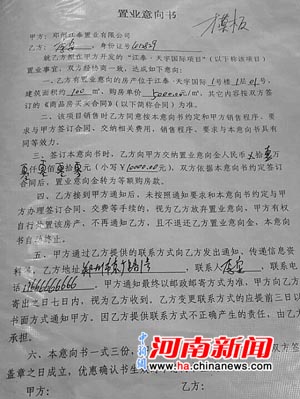 置业意向书
模板
甲方：郑州江泰置业有限公司
乙方：
身份证号410829
就乙方拟在甲方开发的“江泰·天宇国际项目”（以下称该项目）
置业事宜，双方经协商一致，达成如下电
一、乙方有置业意向的房产位于江泰·天宇国际1号楼 层 号，
建筑面积约100 m²，购房单价5000.00元/m²。其它内容按双方签
订的《商品房买卖合同》（以下简称合同）为准。
二、该项目销售时乙方同意按本意向书约定和甲方销售程序、要
求与甲方签订合同、交纳相关费用，销售程序、要求与本意向书具有
同等效力。
三、签订本意向书时，乙方向甲方交纳置业意向金人民币 拾 壹 万
零仟零佰零拾零元（小写￥10000.00元），双方依据本意向书约定签订
合同后，置业意向金转为等额购房款。
四、乙方接到甲方通知后，未按照通知要求和本意向书约定与甲
方办理签订合同、交费等手续的，视为乙方放弃置业意向，甲方有权
自行处置该房产，不再通知乙方，且不退还乙方置业意向金，本意向
书自 终止。
五、甲方通过乙方提供的联系方式向乙方发出通知、传递信息资
料 ，乙方地址郑州市 ，联系人 ，联系电
话13666666666，甲方通知最终以邮政邮寄方式为准，在甲方向乙方
寄出之日起七日内，视为乙方收到，乙方变更联系方式的应提前三日以
书面方式通知甲方。因乙方提供联系方式不正确产生的责任，由乙方
承担。
六、本意向书一式三份， 双方签
盖章之日成立，优惠确认书生效
甲方： 乙方：
中新网
河南新闻
www.ha.chinanews.com.cn